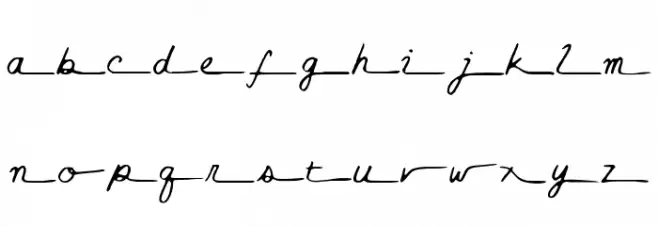 a b c d e f g h i j k l m
n o p q r s t u r w x y z